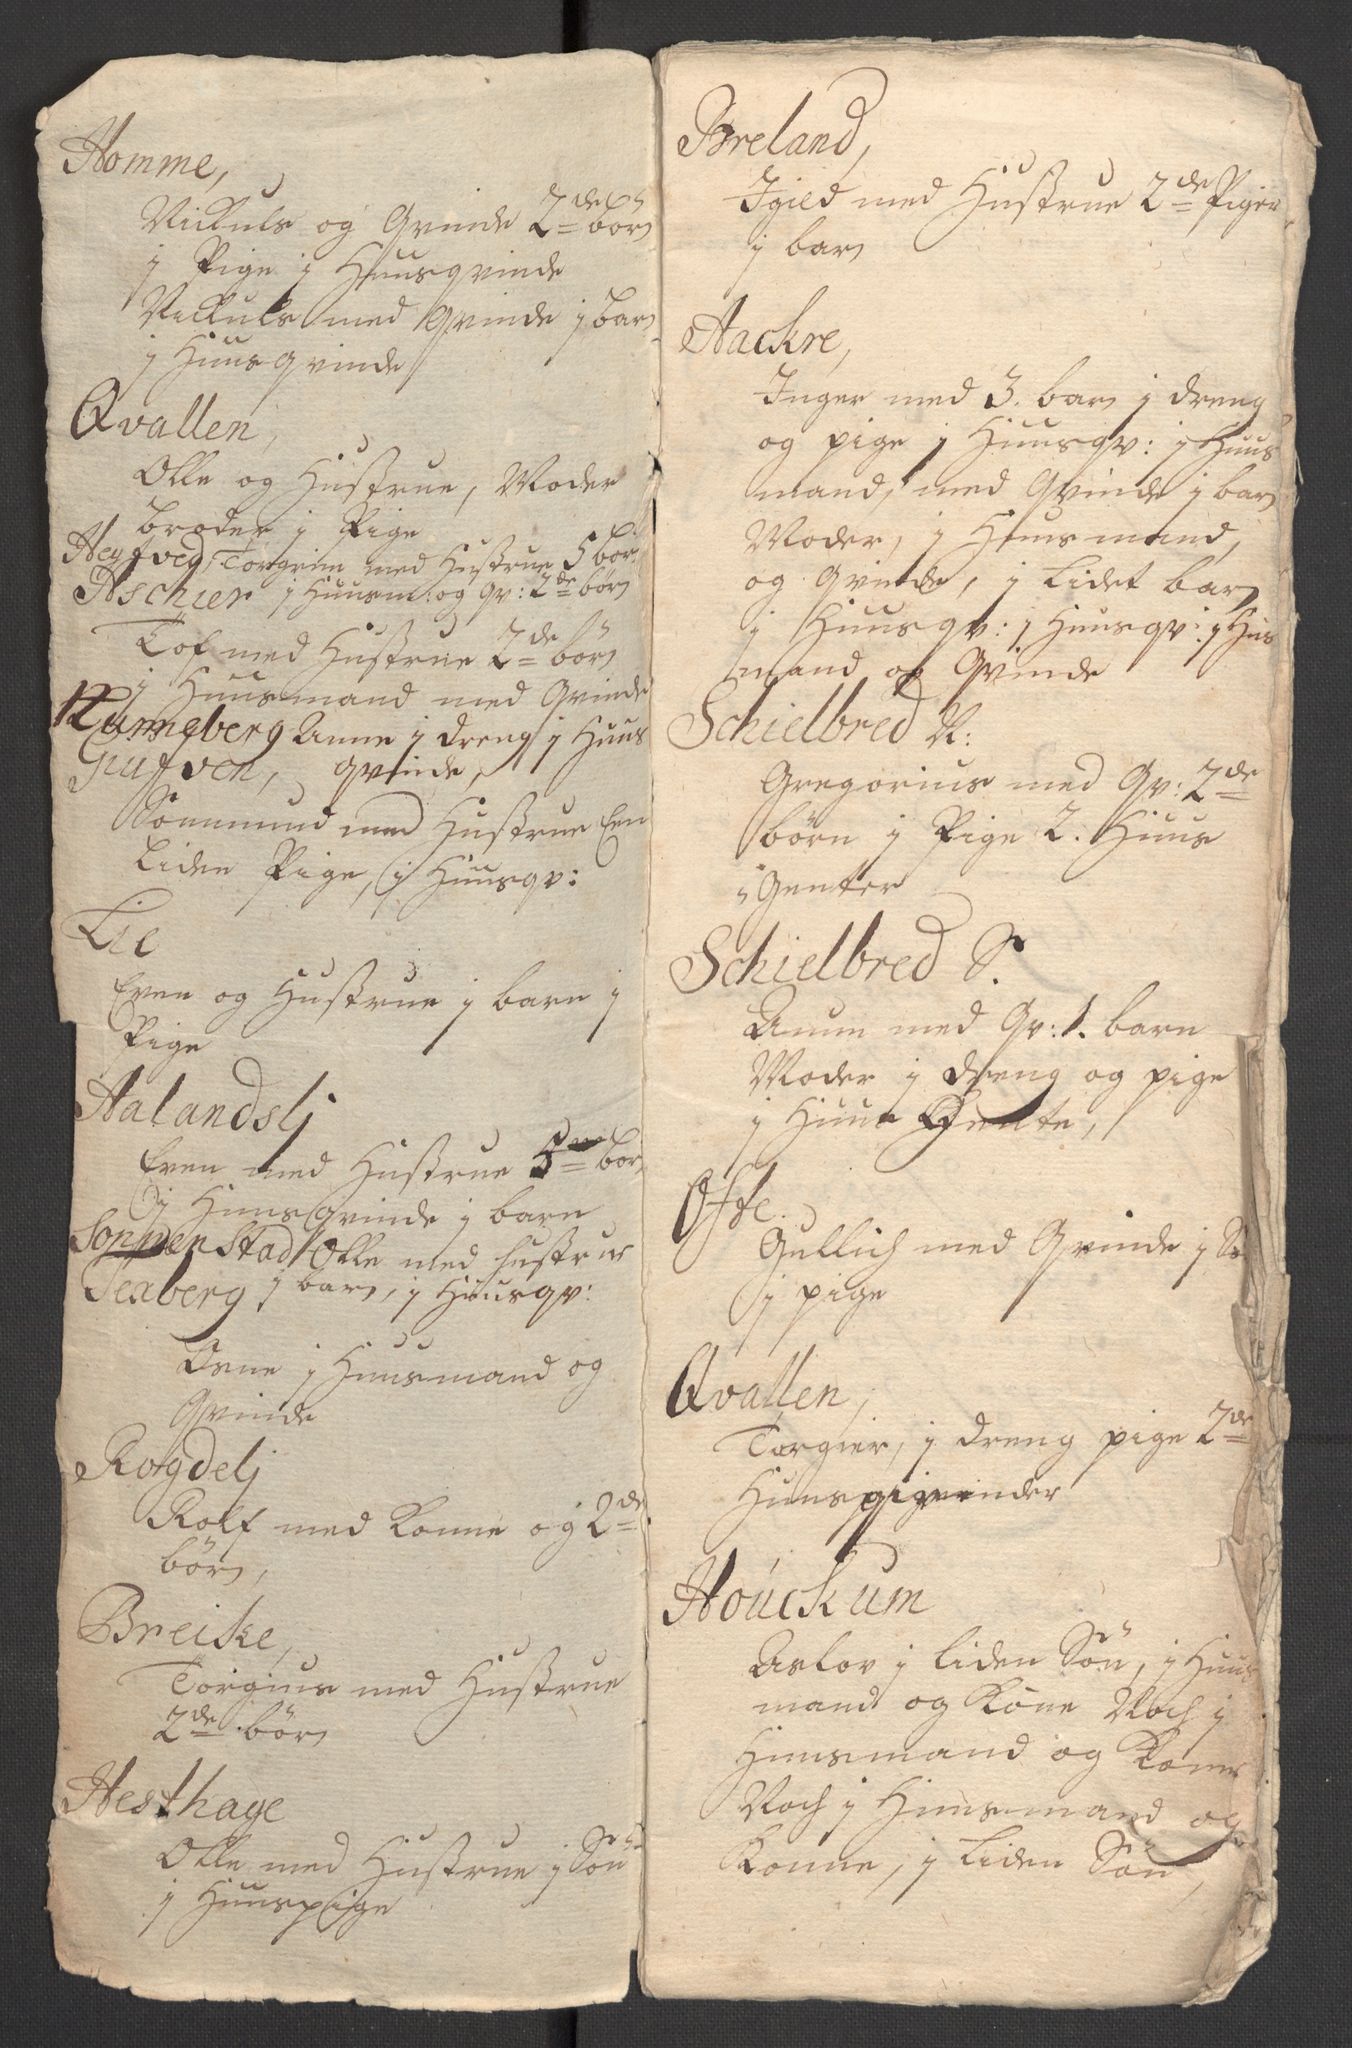 Homme,
Nickuls og Qvinde 2de børn
j Pige j Huusqvinde
Nickuls med Qvinde j barn
j Huusqvinde
Qvallen,
Olle og Hustrue, Moder
broder j Pige
Torgrim med Hustrue 5 børn
Aschier j Huusm: og qv: 2de børn
Tof med Hustrue 2de børn
j Huusmand med Qvinde
Runneberg Anne j dreng j Huus
qvinde,
Sommund med Hustrue Een
liden Pige, j Huusqv:
Lie
Even og Hustrue j barn j
Pige
Aalandslj
Even med Hustrue 5 børn
j Huusqvinde j barn
Sonnenstad Olle med hustrue
Sexberg j barn, j Huusqv:
Arne j Huusmand og
Qvinde
Rogdelj
Rolf med Konne og 2de
børn,
Breike,
Torgius med Hustrue
2de børn
Hesthage
Olle med Hustrue j Sön
j Huuspige
Breland,
Igield med Hustrue 2de Piger
j barn
Aackre,
Inger med 3. barn j dreng
og pige j Huusqv: j Huus
mand, med Qvinde j barn
Moder, j Huusmand,
og Qvinde, j Lidet barn
j Huusqv: j Huusqv: j Hus
mand og Qvinde
Schielbred N:
Gregorius med Qv: 2de
børn j Pige 2. Huus
Genter
Schielbred S.
Anun med Qv: 1. barn
Moder j dreng og pige
j Huus Gente,
Ofte.
Gullich med Qvinde j
j pige
Qvallen,
Torgier, j dreng pige 2de
Huusqvinder
Houckum
Aslov j liden Sön, j Huus
mand og Kone Noch j
Huusmand og Kone
Noch j Huusmand og
Konne, j liden Sön,